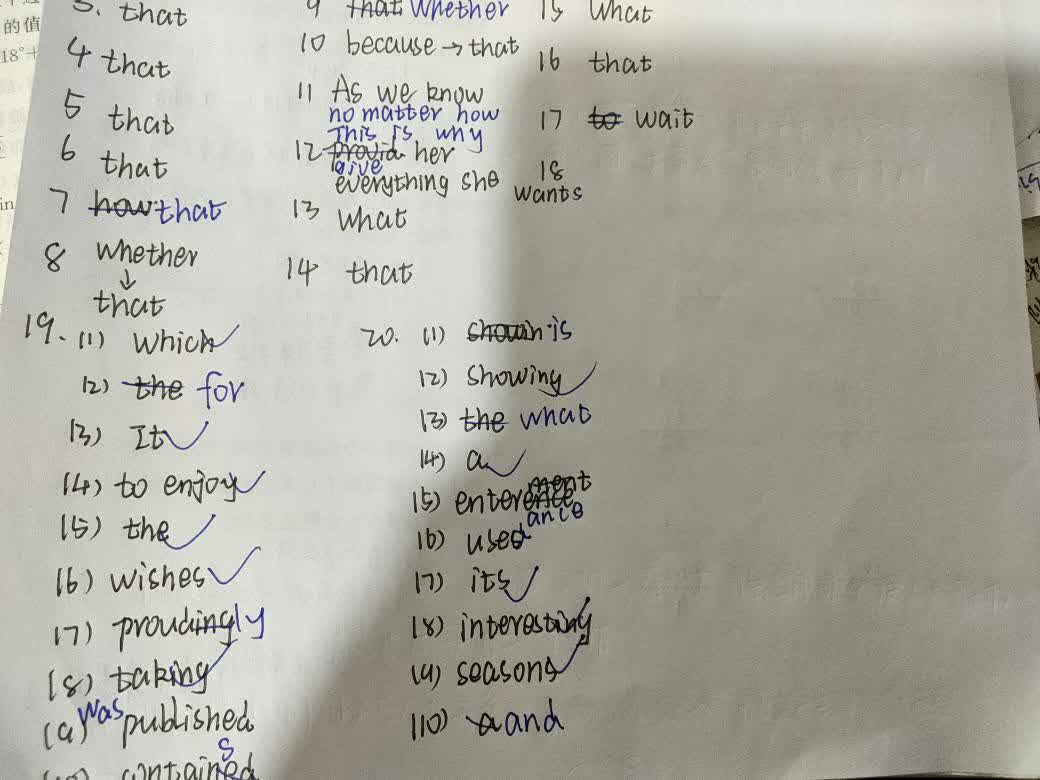 3. that
4 that
5 that
6 that
7 how that
8 whether
↓
that
9 that whether
10 because → that
11 As we know
no matter how
This is why
12 provid her
give
everything she
wants
13 what
14 that
15 What
16 that
17 to wait
18
19. (1) which
(2) the for
(3) It
(4) to enjoy
(5) the
(6) wishes
(7) proudingly
(8) taking
(9) was published
contained s
20. (1) shown is
(2) showing
(3) the what
(4) a
(5) enterence ment
ance
(6) used
(7) its
(8) interesting
(9) seasons
(10) a and
的值
18°+
in